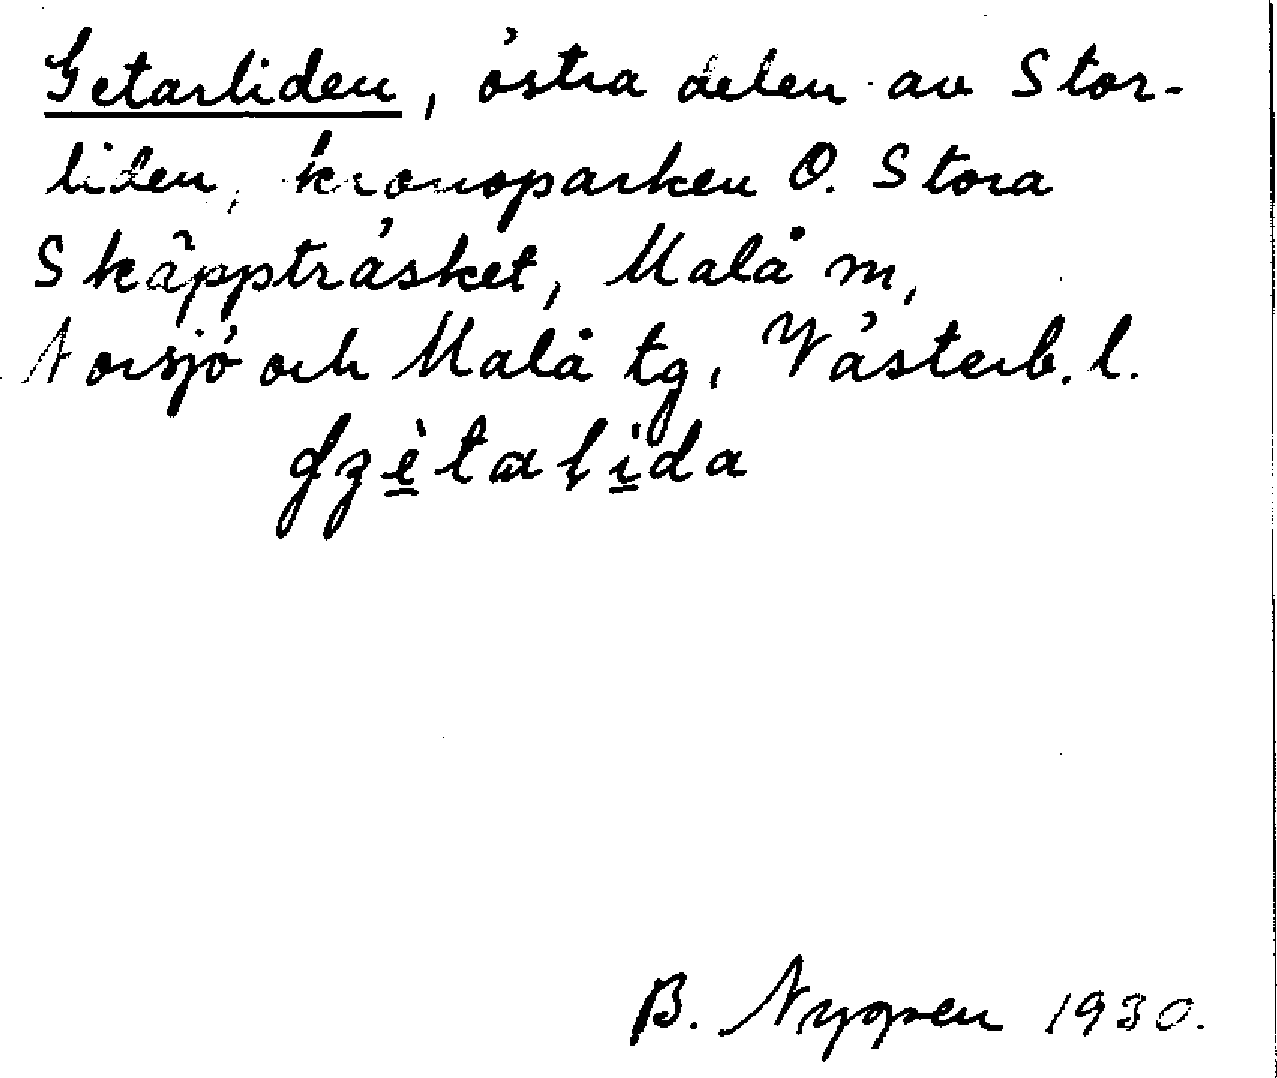 Getarliden, östra delen av Stor-
liden, kronoparken Ö. Stora
Skäppträsket, Malå m,
Norsjö och Malå tg, Västerb. l.
B. Nygren 1930.